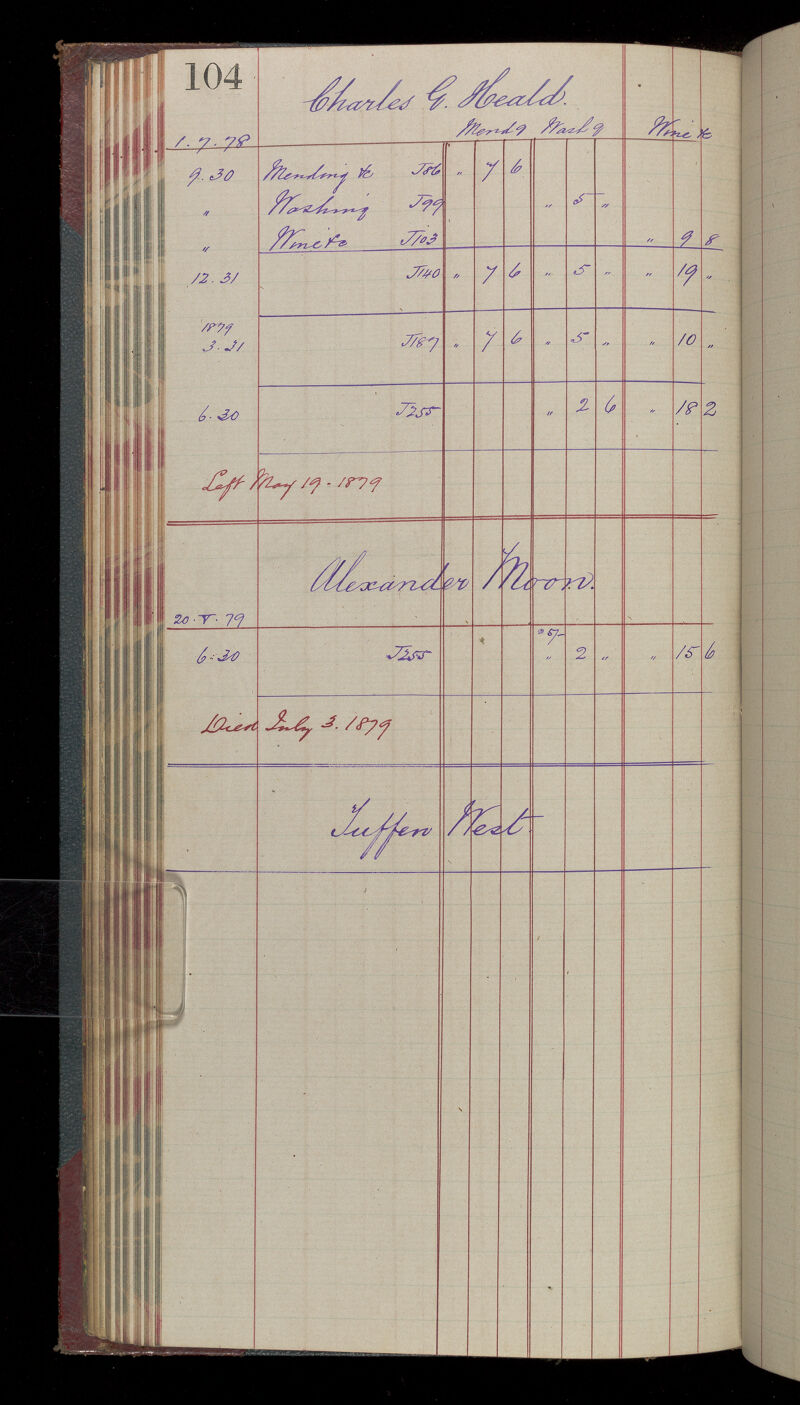 104
Charles G. Heald.
1.7.78 Mendg Washg Wine &c
9.30 Mending &c J86 " 7 6
" Washing J99 " 5 "
" Wine &c J103 " 9 8
12.31 J140 " 7 6 " 5 " " 19 "
1879
3.31 J187 " 7 6 " 5 " " 10 "
6.30 J255 " 2 6 " 18 2
Left May 19 - 1879
Alexander Moon.
20.V.79
@ 5/-
6.30 J255 " 2 " " 15 6
Died July 3. 1879
Tuffen West